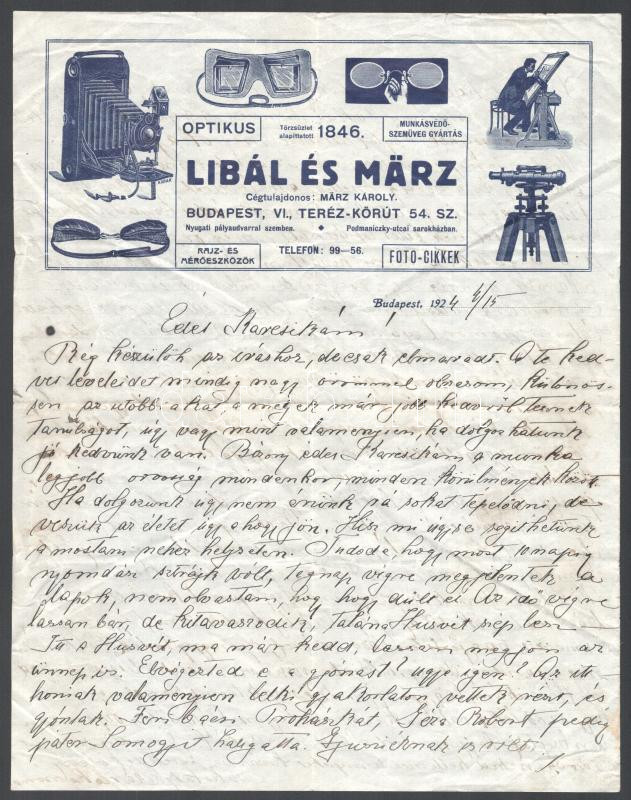 KODAK
OPTIKUS
Törzsüzlet alapíttatott 1846.
MUNKÁSVÉDŐ-
SZEMÜVEG GYÁRTÁS
LIBÁL ÉS MÄRZ
Cégtulajdonos: MÄRZ KÁROLY.
BUDAPEST, VI., TERÉZ-KÖRÚT 54. SZ.
Nyugati pályaudvarral szemben. ◆ Podmaniczky-utcai sarokházban.
RAJZ- ÉS
MÉRŐESZKÖZÖK
TELEFON: 99—56.
FOTO-CIKKEK
Budapest, 1924 4/15
Édes Karcsikám!
Rég készülök az íráshoz, de csak elmaradt. A te ked-
ves leveleidet mindig nagy örömmel olvasom, különö-
sen az utóbbiakat, a melyek már jobb kedvről tesznek
tanúbágot, úgy vagy mint valamennyien, ha dolgozhatunk
jó kedvünk van. Bizony édes Karcsikám a munka
legjobb orvosság mindenkor, minden körülmények közt.
Ha dolgozunk úgy nem érünk rá sokat tépelődni, de
vesszük az életet úgy ahogy jön. Hisz mi úgyse segithetünk
a mostani nehéz helyzeten. Tudod e, hogy most 10 napig
nyomdász sztrájk volt, tegnap végre megjelentek a
lapok, nem olvastam, hogy hogy dült el. Az idő végre
lassan bár, de kitavaszodik, talán a Husvét szép lesz.
Itt a Husvét, ma már kedd, lassan megjön az
ünnep is. Elvégezted e a gyónást? ugye igen? Az itt-
honiak valamennyien lelki gyakorlaton vettek részt, és
gyóntak. Feri bácsi Prohászkát, Géza Róbert pedig
páter Somogyit hallgatta. Gyusziéknak is volt,